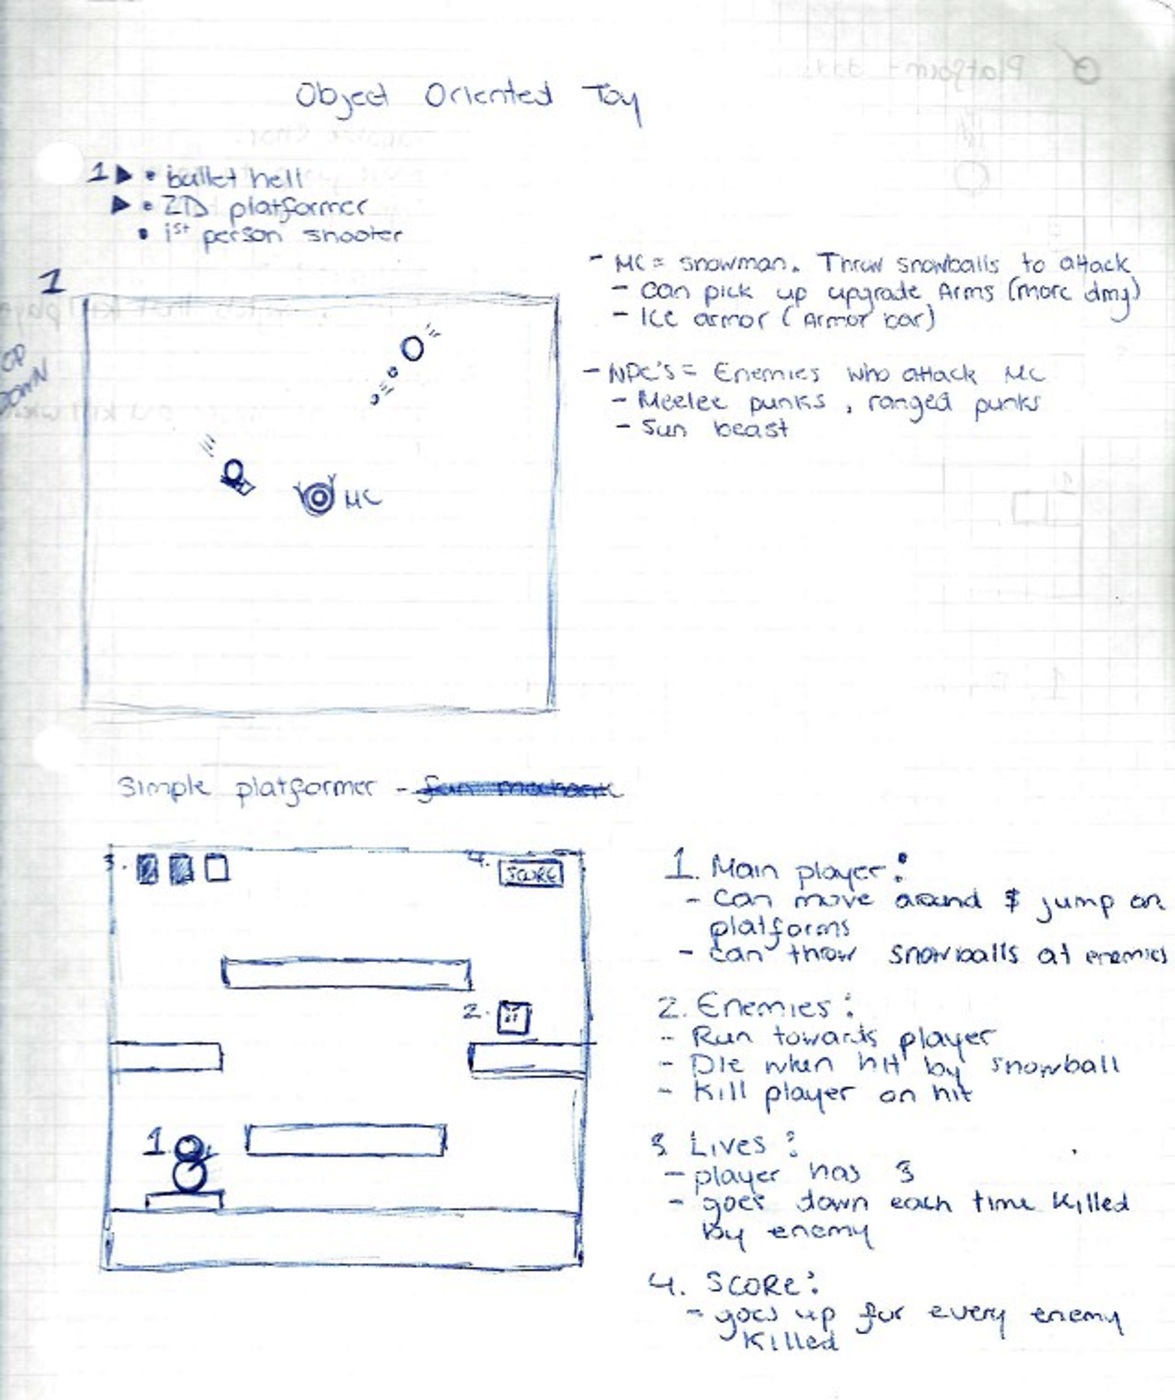 Object Oriented Toy
1 ▶ • bullet hell
▶ • 2D platformer
• 1st person shooter
1
- MC = snowman. Throw snowballs to attack
- can pick up upgrade Arms (more dmg)
- Ice armor (Armor bar)
- NPC's = Enemies who attack MC
- Meelee punks, ranged punks
- Sun beast
OP
DOWN
MC
Simple platformer -
3.
4.
SCORE
2.
1.
1. Main player:
- Can move around & jump on
platforms
- can throw snowballs at enemies
2. Enemies:
- Run towards player
- Die when hit by snowball
- Kill player on hit
3 Lives:
- player has 3
- goes down each time killed
by enemy
4. SCORE:
- goes up for every enemy
killed